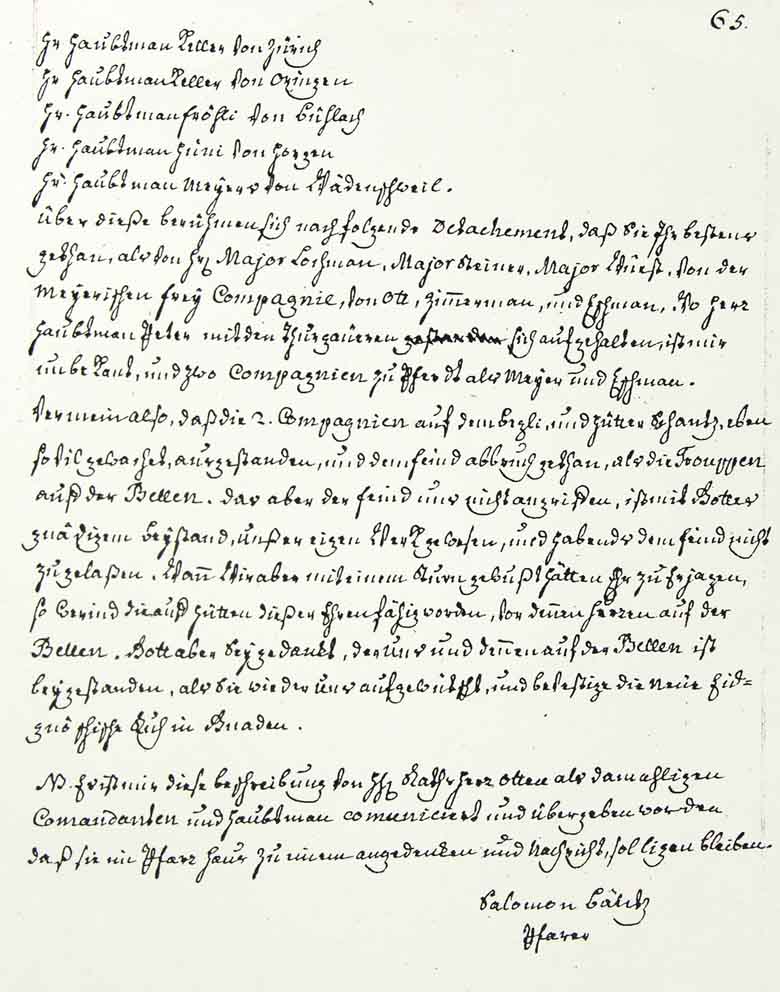 65.
Hr Haubtman Keller von Zürich
Hr Haubtman Keller von Oringen
Hr. Haubtman Fröhli von Bühlach
Hr. Haubtman Hüni von Horgen
Hr. Haubtman Meyer von Wädenschweil.
Über dieße berühmen sich nachfolgende Detachement, daß Sie Ihr bestens
gethan, als von Hr Major Lochman, Major Steiner, Major Wüest, von der
Meyerischen frey Compagnie, von Ott, Zimmerman, und Eschman, Wo Herr
Haubtman Peter mit den Thurgäueren gestanden sich aufgehalten, ist mir
unbekant, und zwo Compagnien zu Pferdt als Meyer und Eschman.
Vermein also, daß die 2. Compagnien auf dem und Hütter Schantz, eben
so vil gewachet, ausgestanden, und dem feind abbruch gethan, als die Trouppen
auß der Bellen. das aber der feind uns nicht angriffen, ist mit Gottes
gnädigem beystand, unßer eigen Werk gewesen, und habends dem feind nicht
zugelaßen. Wann Wir aber mit einem Sturn gewußt hätten Ihr zu Erjagen,
so die auß Hütten dießer Ehren fähig worden, vor denen Herren auf der
Bellen. Gott aber Seÿ gedanckt, der uns und denen auf der Bellen ist
beÿgestanden, als Sie wieder uns aufgewütscht, und bevestige die Neüe Eid=
gnößschische Ruh in Gnaden.
NB. Er ist mir diese beschreibung von Hr Rathsherr Otten als damahligen
Comandanten und Haubtman comuniciert und übergeben worden
daß sie im Pfarr Haus zu einem angedencken und Nachricht, sol ligen bleiben.
Salomon
Pfarer